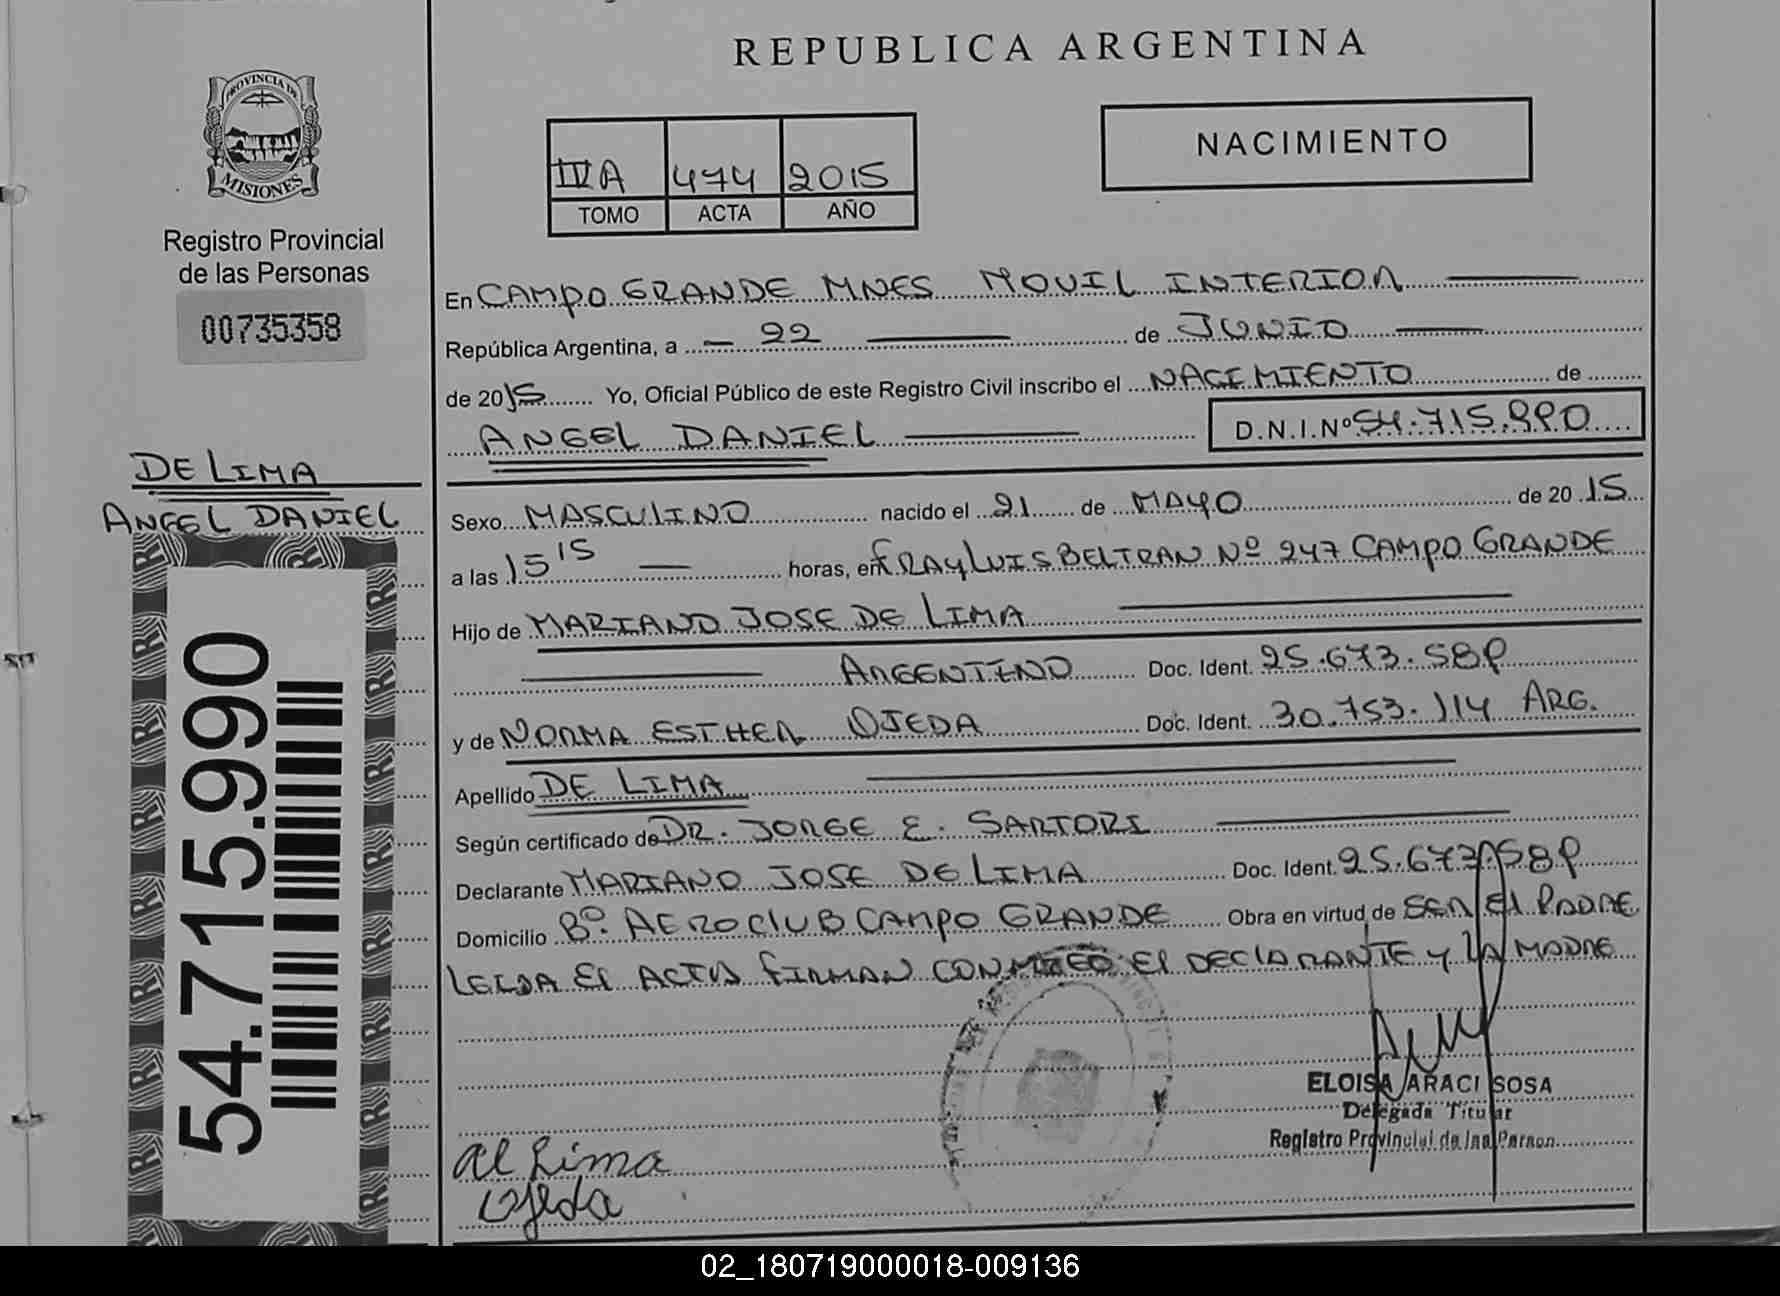 REPUBLICA ARGENTINA
PROVINCIA DE
MISIONES
Registro Provincial
de las Personas
00735358
IVA 474 2015
TOMO ACTA AÑO
NACIMIENTO
En CAMPO GRANDE MNES MOVIL INTERIOR
República Argentina, a 22 de JUNIO
de 2015 Yo, Oficial Público de este Registro Civil inscribo el NACIMIENTO de
ANGEL DANIEL D.N.I.Nº 54.715.990
DE LIMA
ANGEL DANIEL
54.715.990
Sexo MASCULINO nacido el 21 de MAYO de 2015
a las 15 15 horas, en FRAY LUIS BELTRAN Nº 247 CAMPO GRANDE
Hijo de MARIANO JOSE DE LIMA
ARGENTINO Doc. Ident. 25.673.589
y de NORMA ESTHER OJEDA Doc. Ident. 30.753.114 ARG.
Apellido DE LIMA
Según certificado de DR. JORGE E. SARTORI
Declarante MARIANO JOSE DE LIMA Doc. Ident. 25.673.589
Domicilio Bº. AEROCLUB CAMPO GRANDE Obra en virtud de SER EL PADRE
LEIDA EL ACTA FIRMAN CONMIGO EL DECLARANTE Y LA MADRE
ELOISA ARACI SOSA
Delegada Titular
Registro Provincial de las Person.
Lima
Ojeda
02_180719000018-009136